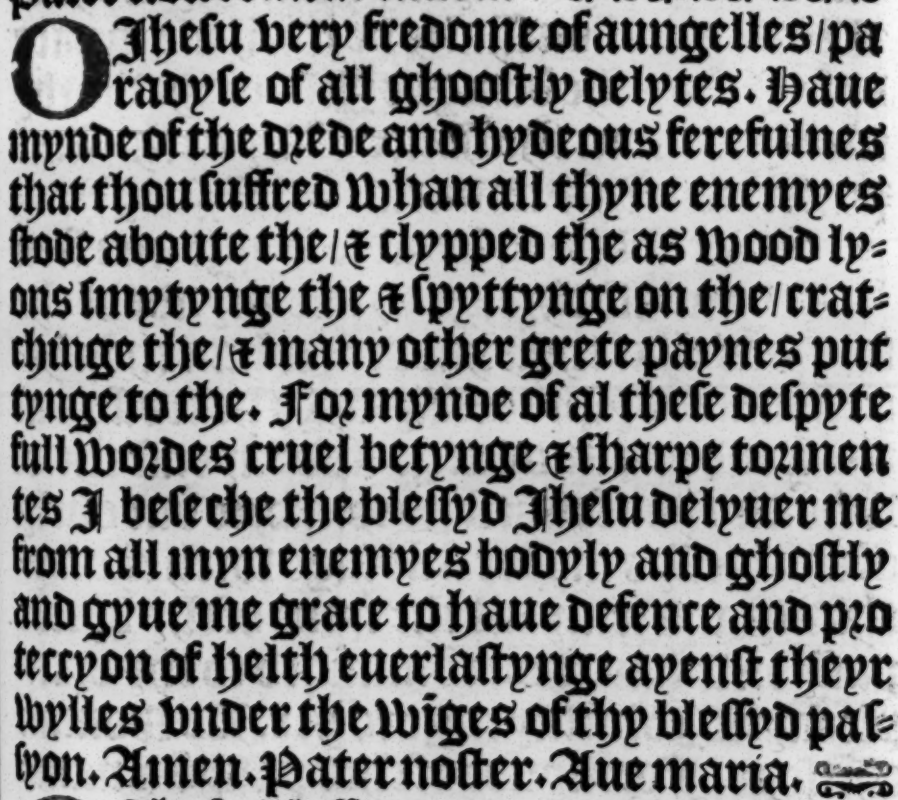 O Jhesu very fredome of aungelles/pa
radyse of all ghoostly delytes. Haue
mynde of the drede and hydeous ferefulnes
that thou suffred whan all thyne enemyes
stode aboute the/& clypped the as wood ly-
ons smytynge the & spyttynge on the/crat-
chinge the/& many other grete paynes put
tynge to the. For mynde of al these despyte
full wordes cruel betynge & sharpe tormen
tes I beseche the blessyd Jhesu delyuer me
from all myn enemyes bodyly and ghostly
and gyue me grace to haue defence and pro
teccyon of helth euerlastynge ayenst theyr
wylles vnder the wīges of thy blessyd pas-
syon. Amen. Pater noster. Aue maria.